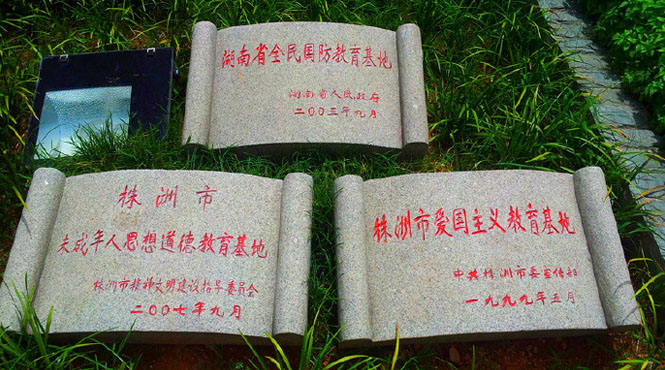 湖南省全民国防教育基地
湖南省人民政府
二〇〇三年九月
株洲市
未成年人思想道德教育基地
株洲市精神文明建设指导委员会
二〇〇七年九月
株洲市爱国主义教育基地
中共株洲市委宣传部
一九九九年五月